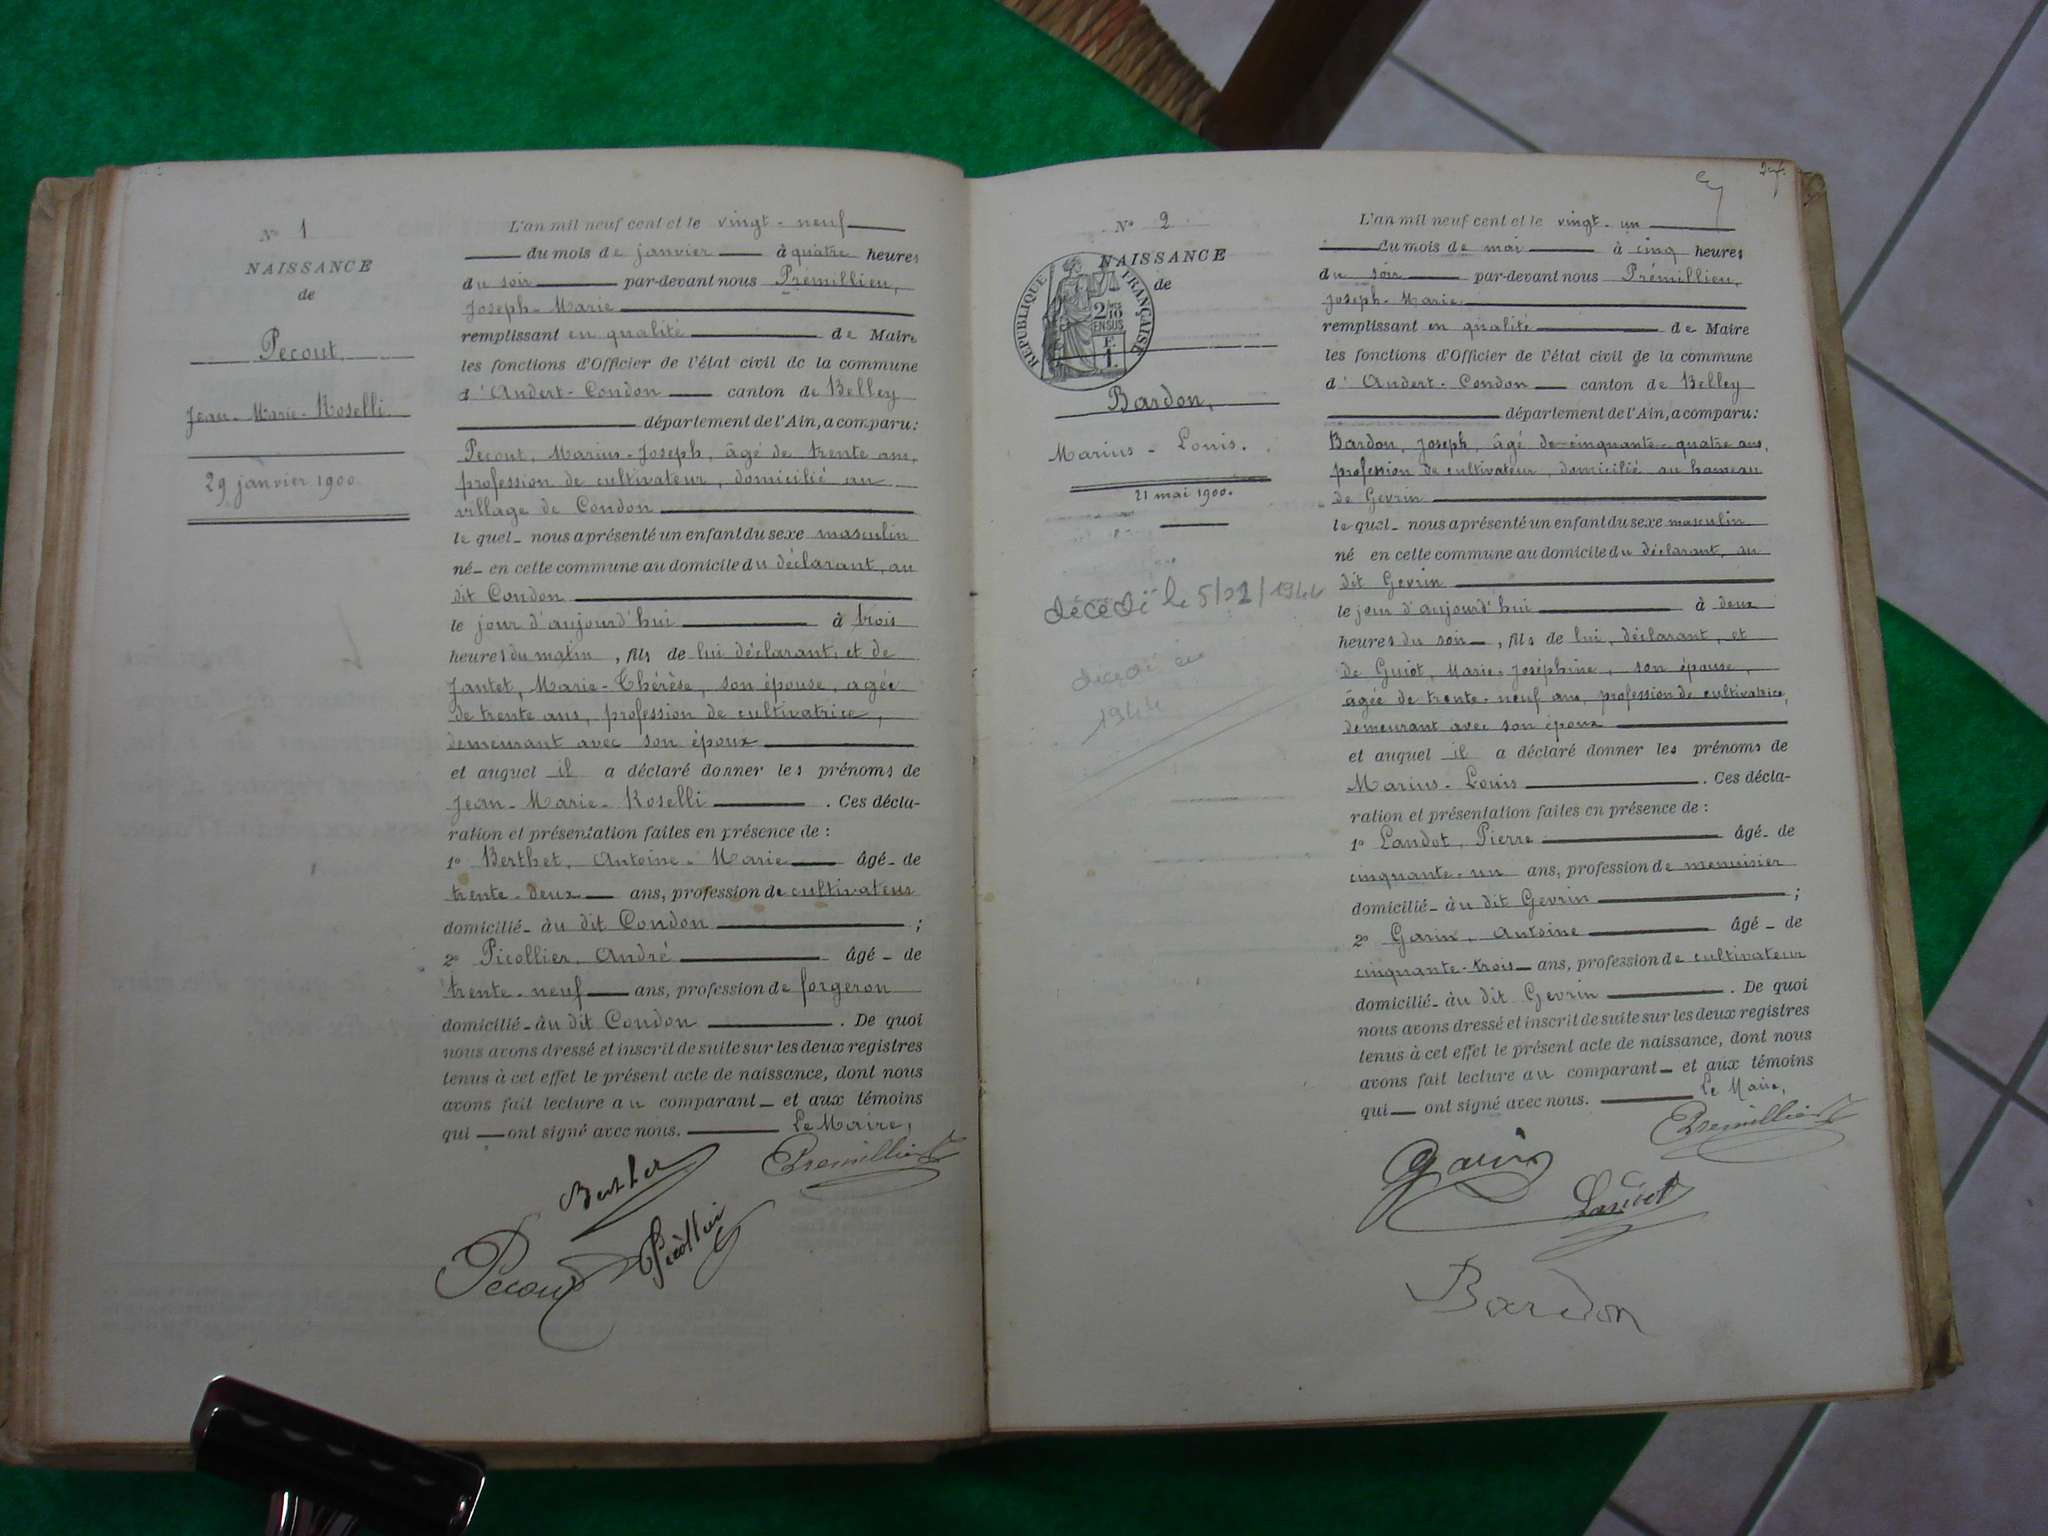 N° 1
NAISSANCE
de
Pecout
Jean-Marie-Roselli
29 janvier 1900
L'an mil neuf cent et le vingt-neuf
du mois de janvier à quatre heures
du soir par-devant nous Prémillieu,
Joseph-Marie
remplissant en qualité de Maire
les fonctions d'Officier de l'état civil de la commune
d'Andert-Condon canton de Belley
département de l'Ain, a comparu:
Pecout, Marius-Joseph, âgé de trente ans,
profession de cultivateur, domicilié au
village de Condon
le quel nous a présenté un enfant du sexe masculin
né en cette commune au domicile du déclarant, au
dit Condon
le jour d'aujourd'hui à trois
heures du matin, fils de lui déclarant, et de
Jantet, Marie-Thérèse, son épouse, agée
de trente ans, profession de cultivatrice,
demeurant avec son époux
et auquel il a déclaré donner les prénoms de
Jean-Marie-Roselli. Ces décla-
ration et présentation faites en présence de :
1° Berthet, Antoine-Marie âgé de
trente-deux ans, profession de cultivateur
domicilié au dit Condon ;
2° Picollier, André âgé de
trente-neuf ans, profession de forgeron
domicilié au dit Condon. De quoi
nous avons dressé et inscrit de suite sur les deux registres
tenus à cet effet le présent acte de naissance, dont nous
avons fait lecture au comparant et aux témoins
qui ont signé avec nous. Le Maire,
Berthet Premillieu
Pecout Picollier
27.
N° 2
NAISSANCE
de
REPUBLIQUE FRANÇAISE
2/10
EN SUS
F.
1.
Bardon,
Marius-Louis.
21 mai 1900.
décédé le 5/ /1944
décédé en
1944
L'an mil neuf cent et le vingt-un
du mois de mai à cinq heures
du soir par-devant nous Prémillieu,
Joseph-Marie
remplissant en qualité de Maire
les fonctions d'Officier de l'état civil de la commune
d'Andert-Condon canton de Belley
département de l'Ain, a comparu:
Bardon, Joseph, âgé de cinquante-quatre ans,
profession de cultivateur, domicilié au hameau
de Gevrin
le quel nous a présenté un enfant du sexe masculin
né en cette commune au domicile du déclarant, au
dit Gevrin
le jour d'aujourd'hui à deux
heures du soir, fils de lui, déclarant, et
de Guiot, Marie-Joséphine, son épouse,
âgée de trente-neuf ans, profession de cultivatrice,
demeurant avec son époux
et auquel il a déclaré donner les prénoms de
Marius-Louis. Ces décla-
ration et présentation faites en présence de :
1° Landot, Pierre âgé de
cinquante-un ans, profession de menuisier
domicilié au dit Gevrin ;
2° Garin, Antoine âgé de
cinquante-trois ans, profession de cultivateur
domicilié au dit Gevrin. De quoi
nous avons dressé et inscrit de suite sur les deux registres
tenus à cet effet le présent acte de naissance, dont nous
avons fait lecture au comparant et aux témoins
qui ont signé avec nous. Le Maire,
Premillieu
Garin
Landot
Bardon